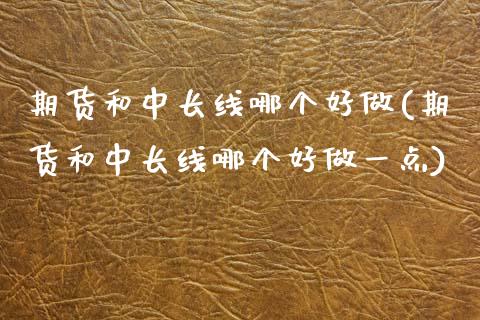 期货和中长线哪个好做(期
货和中长线哪个好做一点)